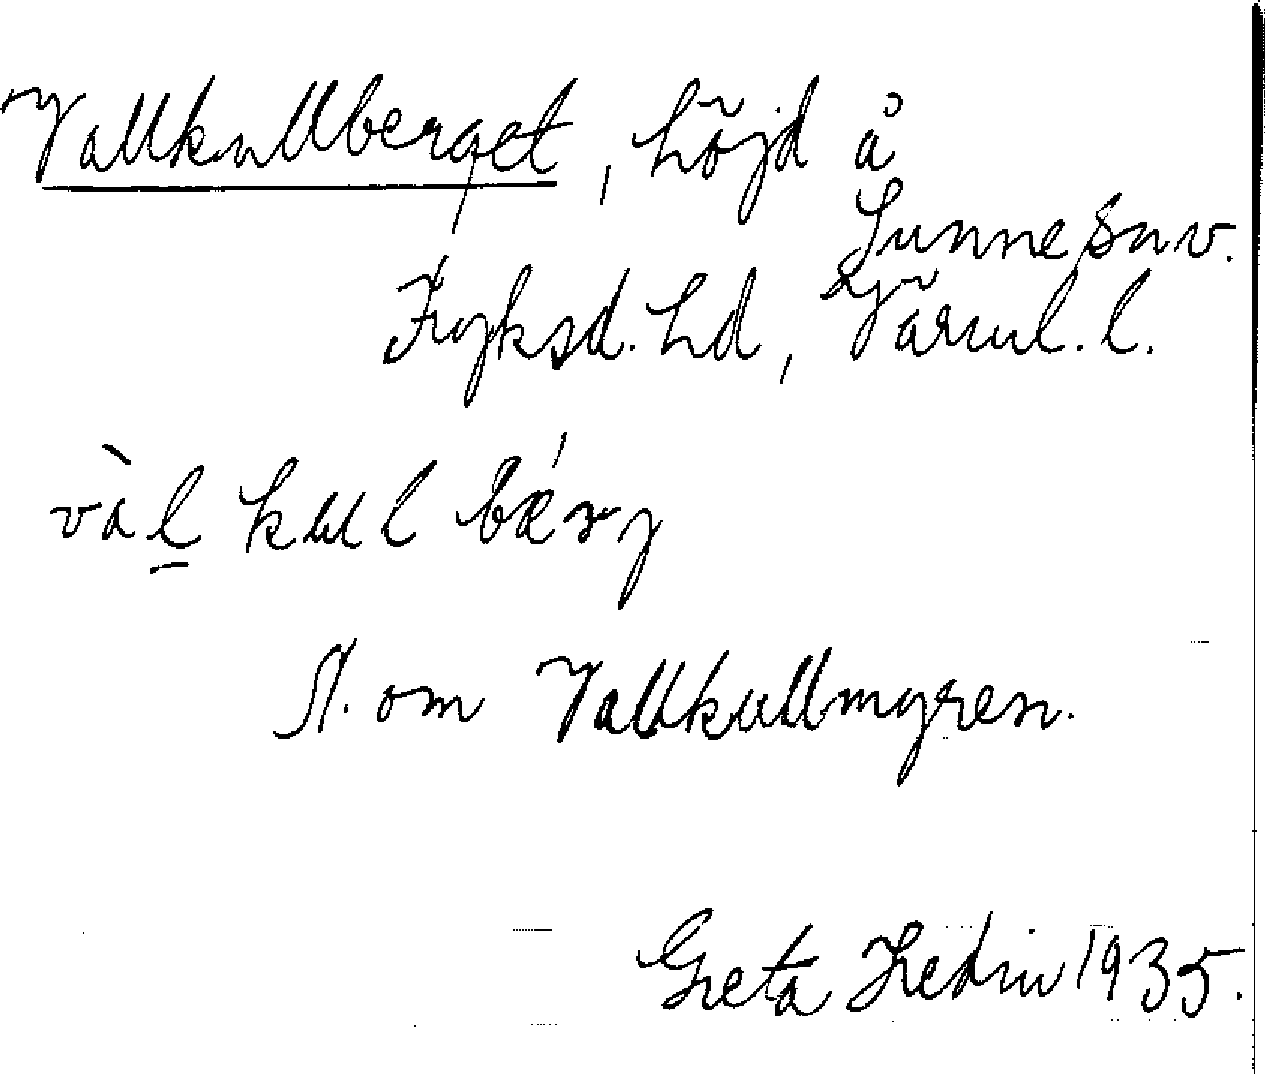 Vallkullberget, höjd å
Sunne sn v.
Fryksd. hd, Värml. l.
vàl kul bǽrj
N. om Vallkullmyren.
Greta Hedin 1935.